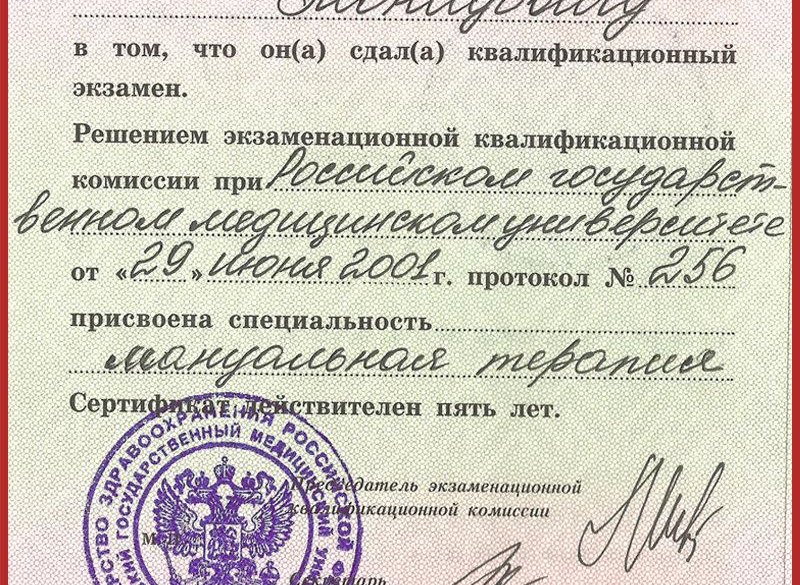 в том, что он(а) сдал(а) квалификационный
экзамен.
Решением экзаменационной квалификационной
комиссии при Российском государст-
венном медицинском университете
от «29» июня 2001 г. протокол № 256
присвоена специальность
мануальная терапия
Сертификат действителен пять лет.
ЗДРАВООХРАНЕНИЯ РОССИЙСКОЙ
ГОСУДАРСТВЕННЫЙ МЕДИЦИНСКИЙ
Председатель экзаменационной
квалификационной комиссии
М.П.
Секретарь